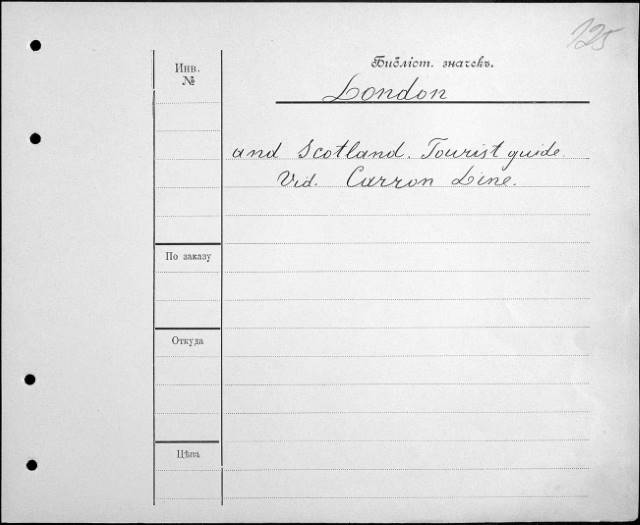 125
Инв. №
Библіот. значекъ.
London
and Scotland. Tourist guide.
Vid. Carron Line.
По заказу
Откуда
Цѣна